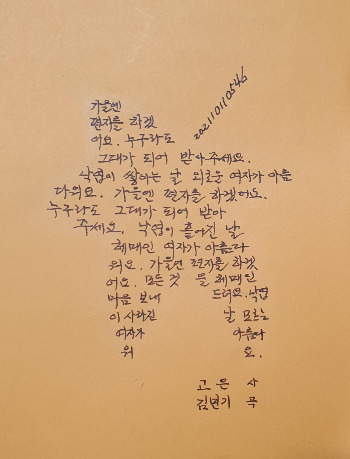 202110110546
가을엔
편지를 하겠
어요. 누구라도
그대가 되어 받아주세요.
낙엽이 쌓이는 날 외로운 여자가 아름
다워요. 가을엔 편지를 하겠어요.
누구라도 그대가 되어 받아
주세요, 낙엽이 흩어진 날
헤매인 여자가 아름다
워요. 가을엔 편지를 하겠
어요. 모든 것 을 헤매인
마음 보내 드려요. 낙엽
이 사라진 날 모르는
여자가 아름다
워 요.
고 은 사
김민기 곡